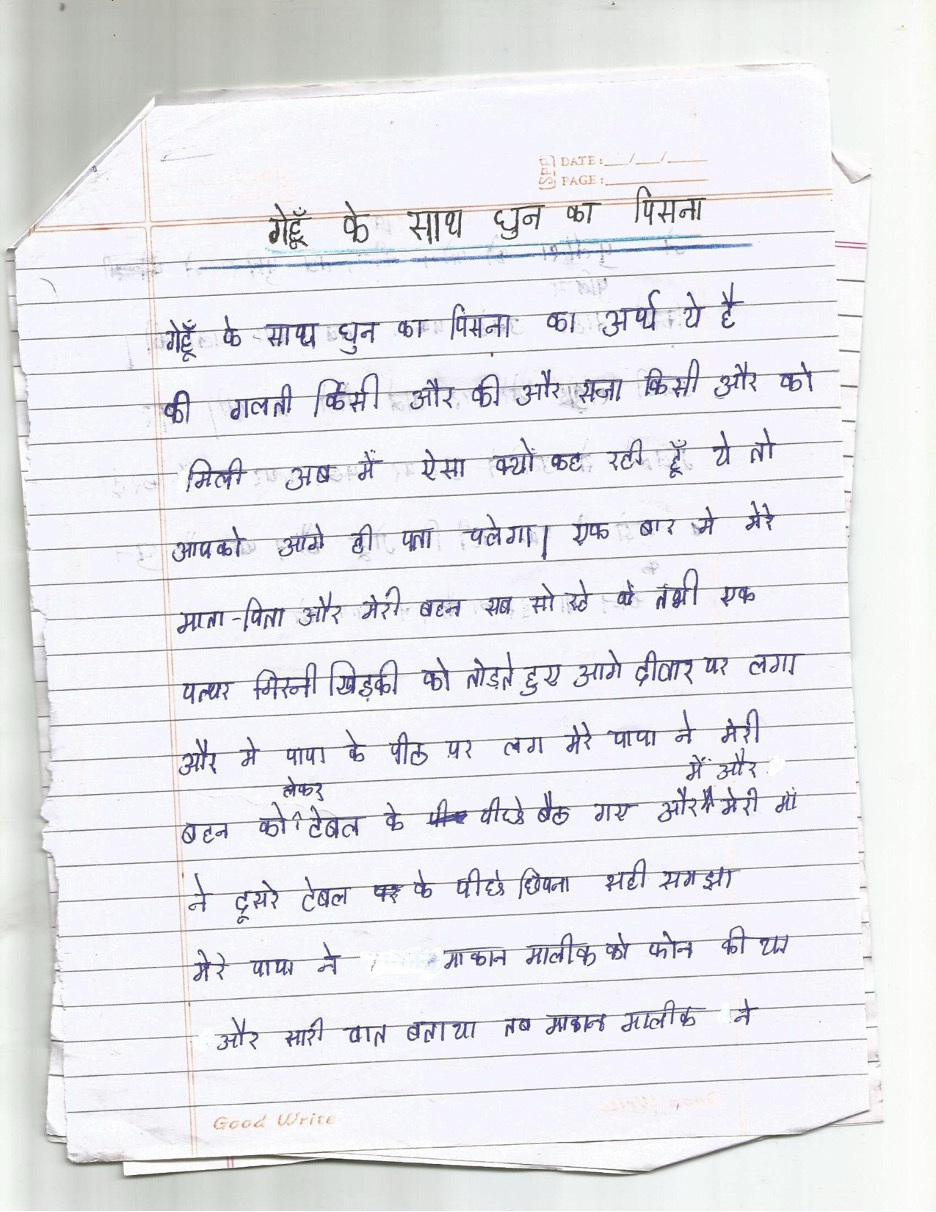 SPL DATE:__/__/____
PAGE:________
गेहूँ के साथ घुन का पिसना
गेहूँ के साथ घुन का पिसना का अर्थ ये है
की गलती किसी और की और सजा किसी और को
मिली अब मैं ऐसा क्यों कह रही हूँ ये तो
आपको आगे ही पता चलेगा। एक बार मे मेरे
माता-पिता और मेरी बहन सब सो रहे थे तभी एक
पत्थर खिड़की को तोड़ते हुए आगे दीवार पर लगा
और मे पापा के पीठ पर लग मेरे पापा ने मेरी
लेकर में और
बहन को टेबल के पीछे बैठ गए और मेरी माँ
ने दूसरे टेबल के पीछे छिपना सही समझा
मेरे पापा ने माकान मालीक को फोन की या
और सारी बात बताया तब माकान मालीक ने
Good Write